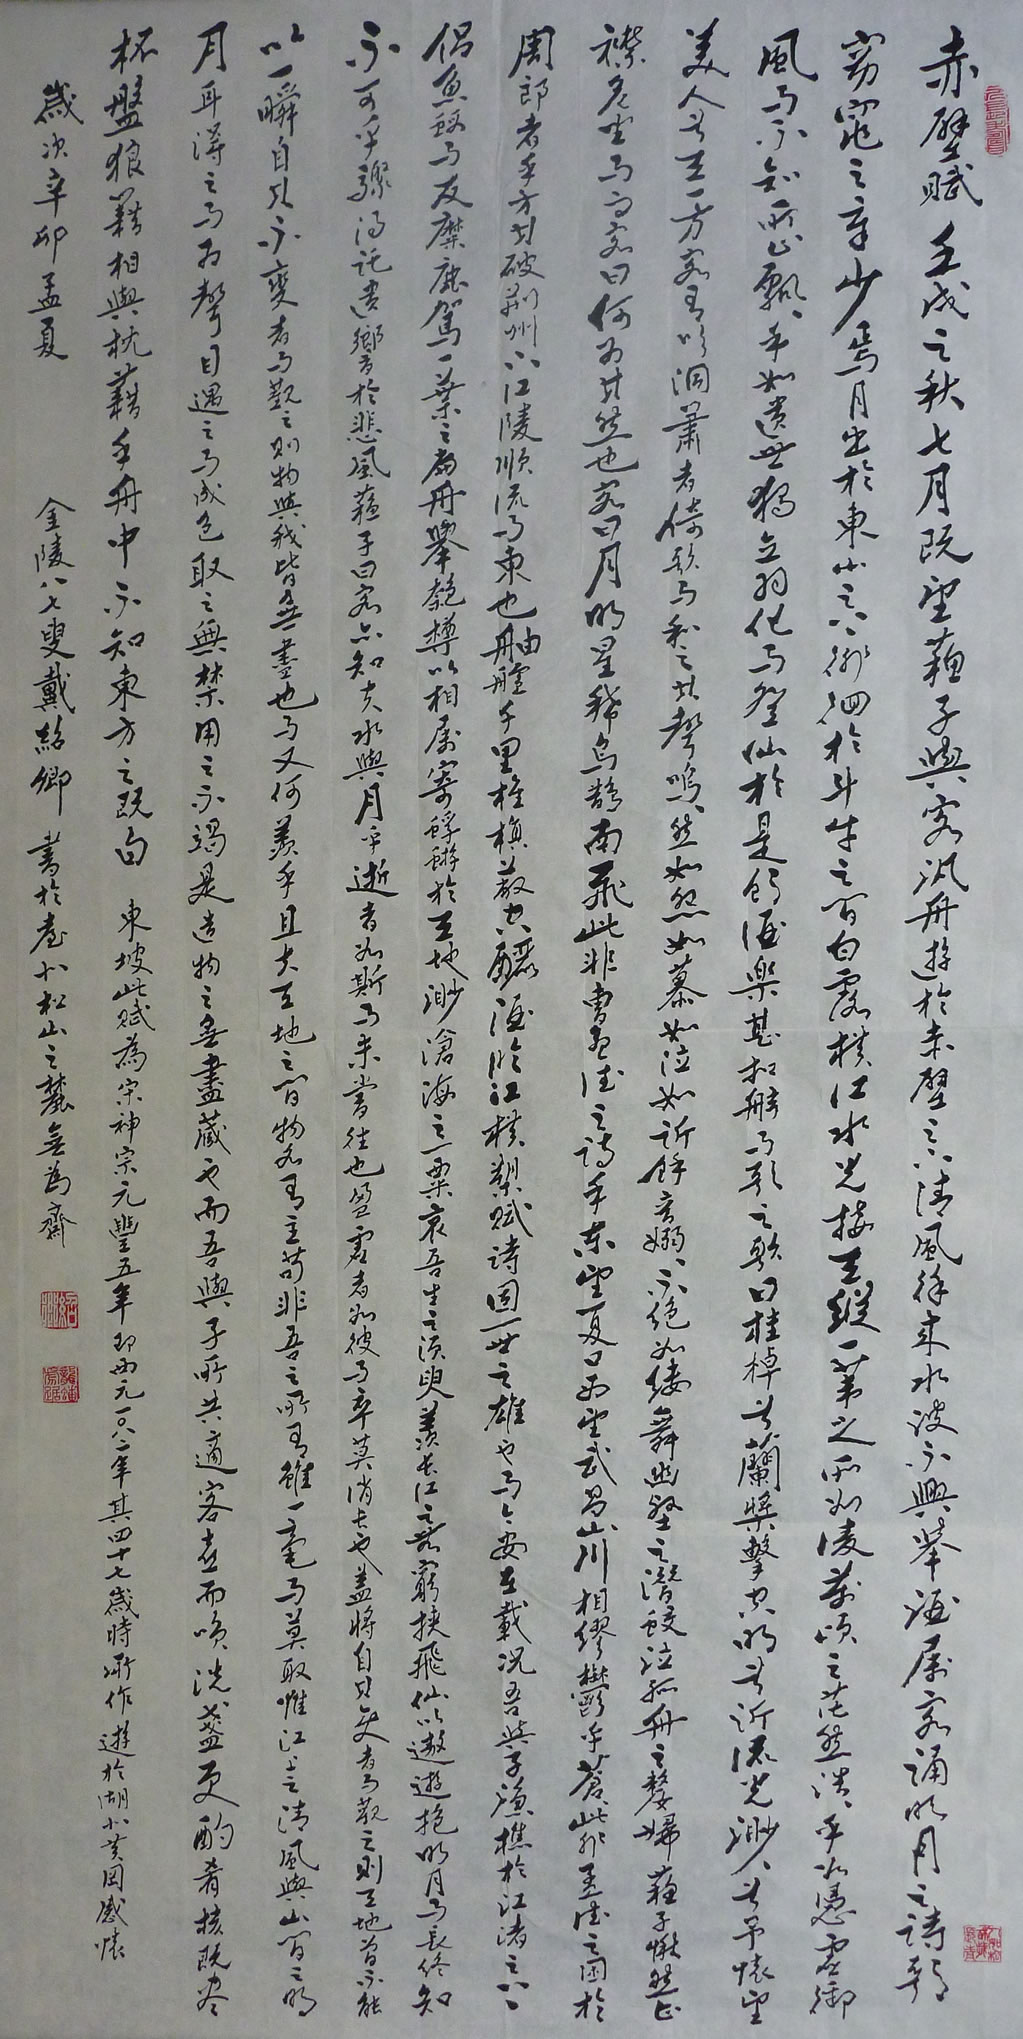 赤壁賦 壬戌之秋七月既望蘇子與客汎舟遊於赤壁之下清風徐來水波不興舉酒屬客誦明月之詩歌
窈窕之章少焉月出於東山之上徘徊於斗牛之間白露橫江水光接天縱一葦之所如凌萬頃之茫然浩浩乎如憑虛御
風而不知所止飄飄乎如遺世獨立羽化而登仙於是飲酒樂甚扣舷而歌之歌曰桂棹兮蘭槳擊空明兮泝流光渺渺兮予懷望
美人兮天一方客有吹洞簫者倚歌而和之其聲嗚嗚然如怨如慕如泣如訴餘音嫋嫋不絕如縷舞幽壑之潛蛟泣孤舟之嫠婦蘇子愀然正
襟危坐而問客曰何為其然也客曰月明星稀烏鵲南飛此非曹孟德之詩乎東望夏口西望武昌山川相繆鬱乎蒼蒼此非孟德之困於
周郎者乎方其破荊州下江陵順流而東也舳艫千里旌旗蔽空釃酒臨江橫槊賦詩固一世之雄也而今安在哉況吾與子漁樵於江渚之上
侶魚蝦而友麋鹿駕一葉之扁舟舉匏樽以相屬寄蜉蝣於天地渺滄海之一粟哀吾生之須臾羨長江之無窮挾飛仙以遨遊抱明月而長終知
不可乎驟得託遺響於悲風蘇子曰客亦知夫水與月乎逝者如斯而未嘗往也盈虛者如彼而卒莫消長也蓋將自其變者而觀之則天地曾不能
以一瞬自其不變者而觀之則物與我皆無盡也而又何羨乎且夫天地之間物各有主苟非吾之所有雖一毫而莫取惟江上之清風與山間之明
月耳得之而為聲目遇之而成色取之無禁用之不竭是造物之無盡藏也而吾與子所共適客喜而笑洗盞更酌肴核既盡
杯盤狼藉相與枕藉乎舟中不知東方之既白 東坡此賦為宋神宗元豐五年即西元一〇八二年其四十七歲時所作遊於湖北黃岡感懷
歲次辛卯孟夏 金陵八七叟戴紹卿 書於臺北松山之麓無為齋